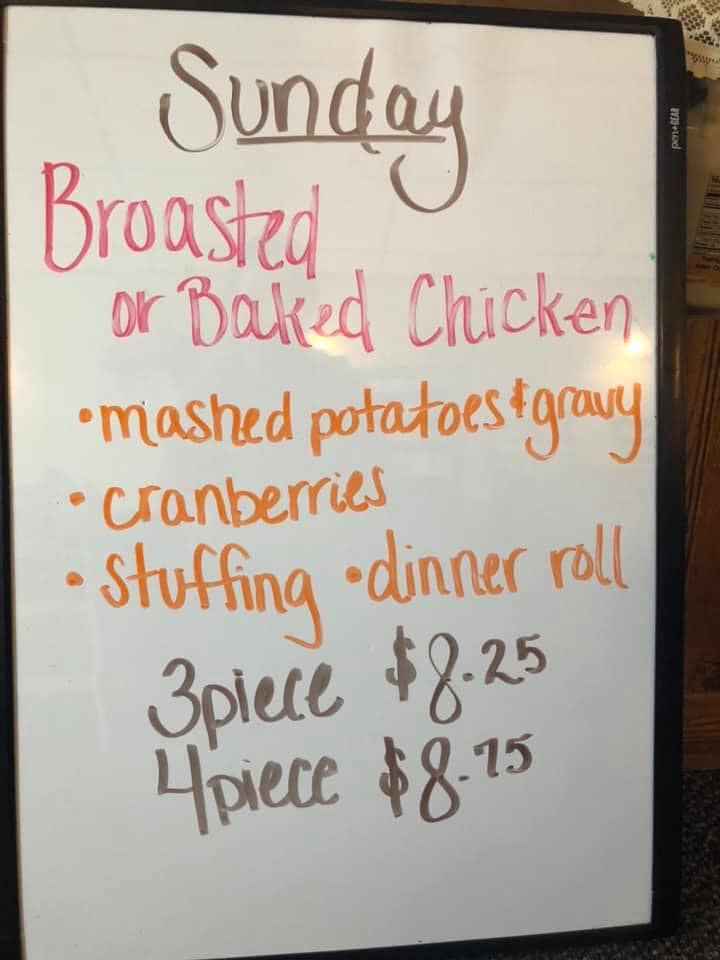 Sunday
Broasted
or Baked Chicken
•mashed potatoes & gravy
• cranberries
• stuffing •dinner roll
3piece $8.25
4piece $8.75
pen+GEAR